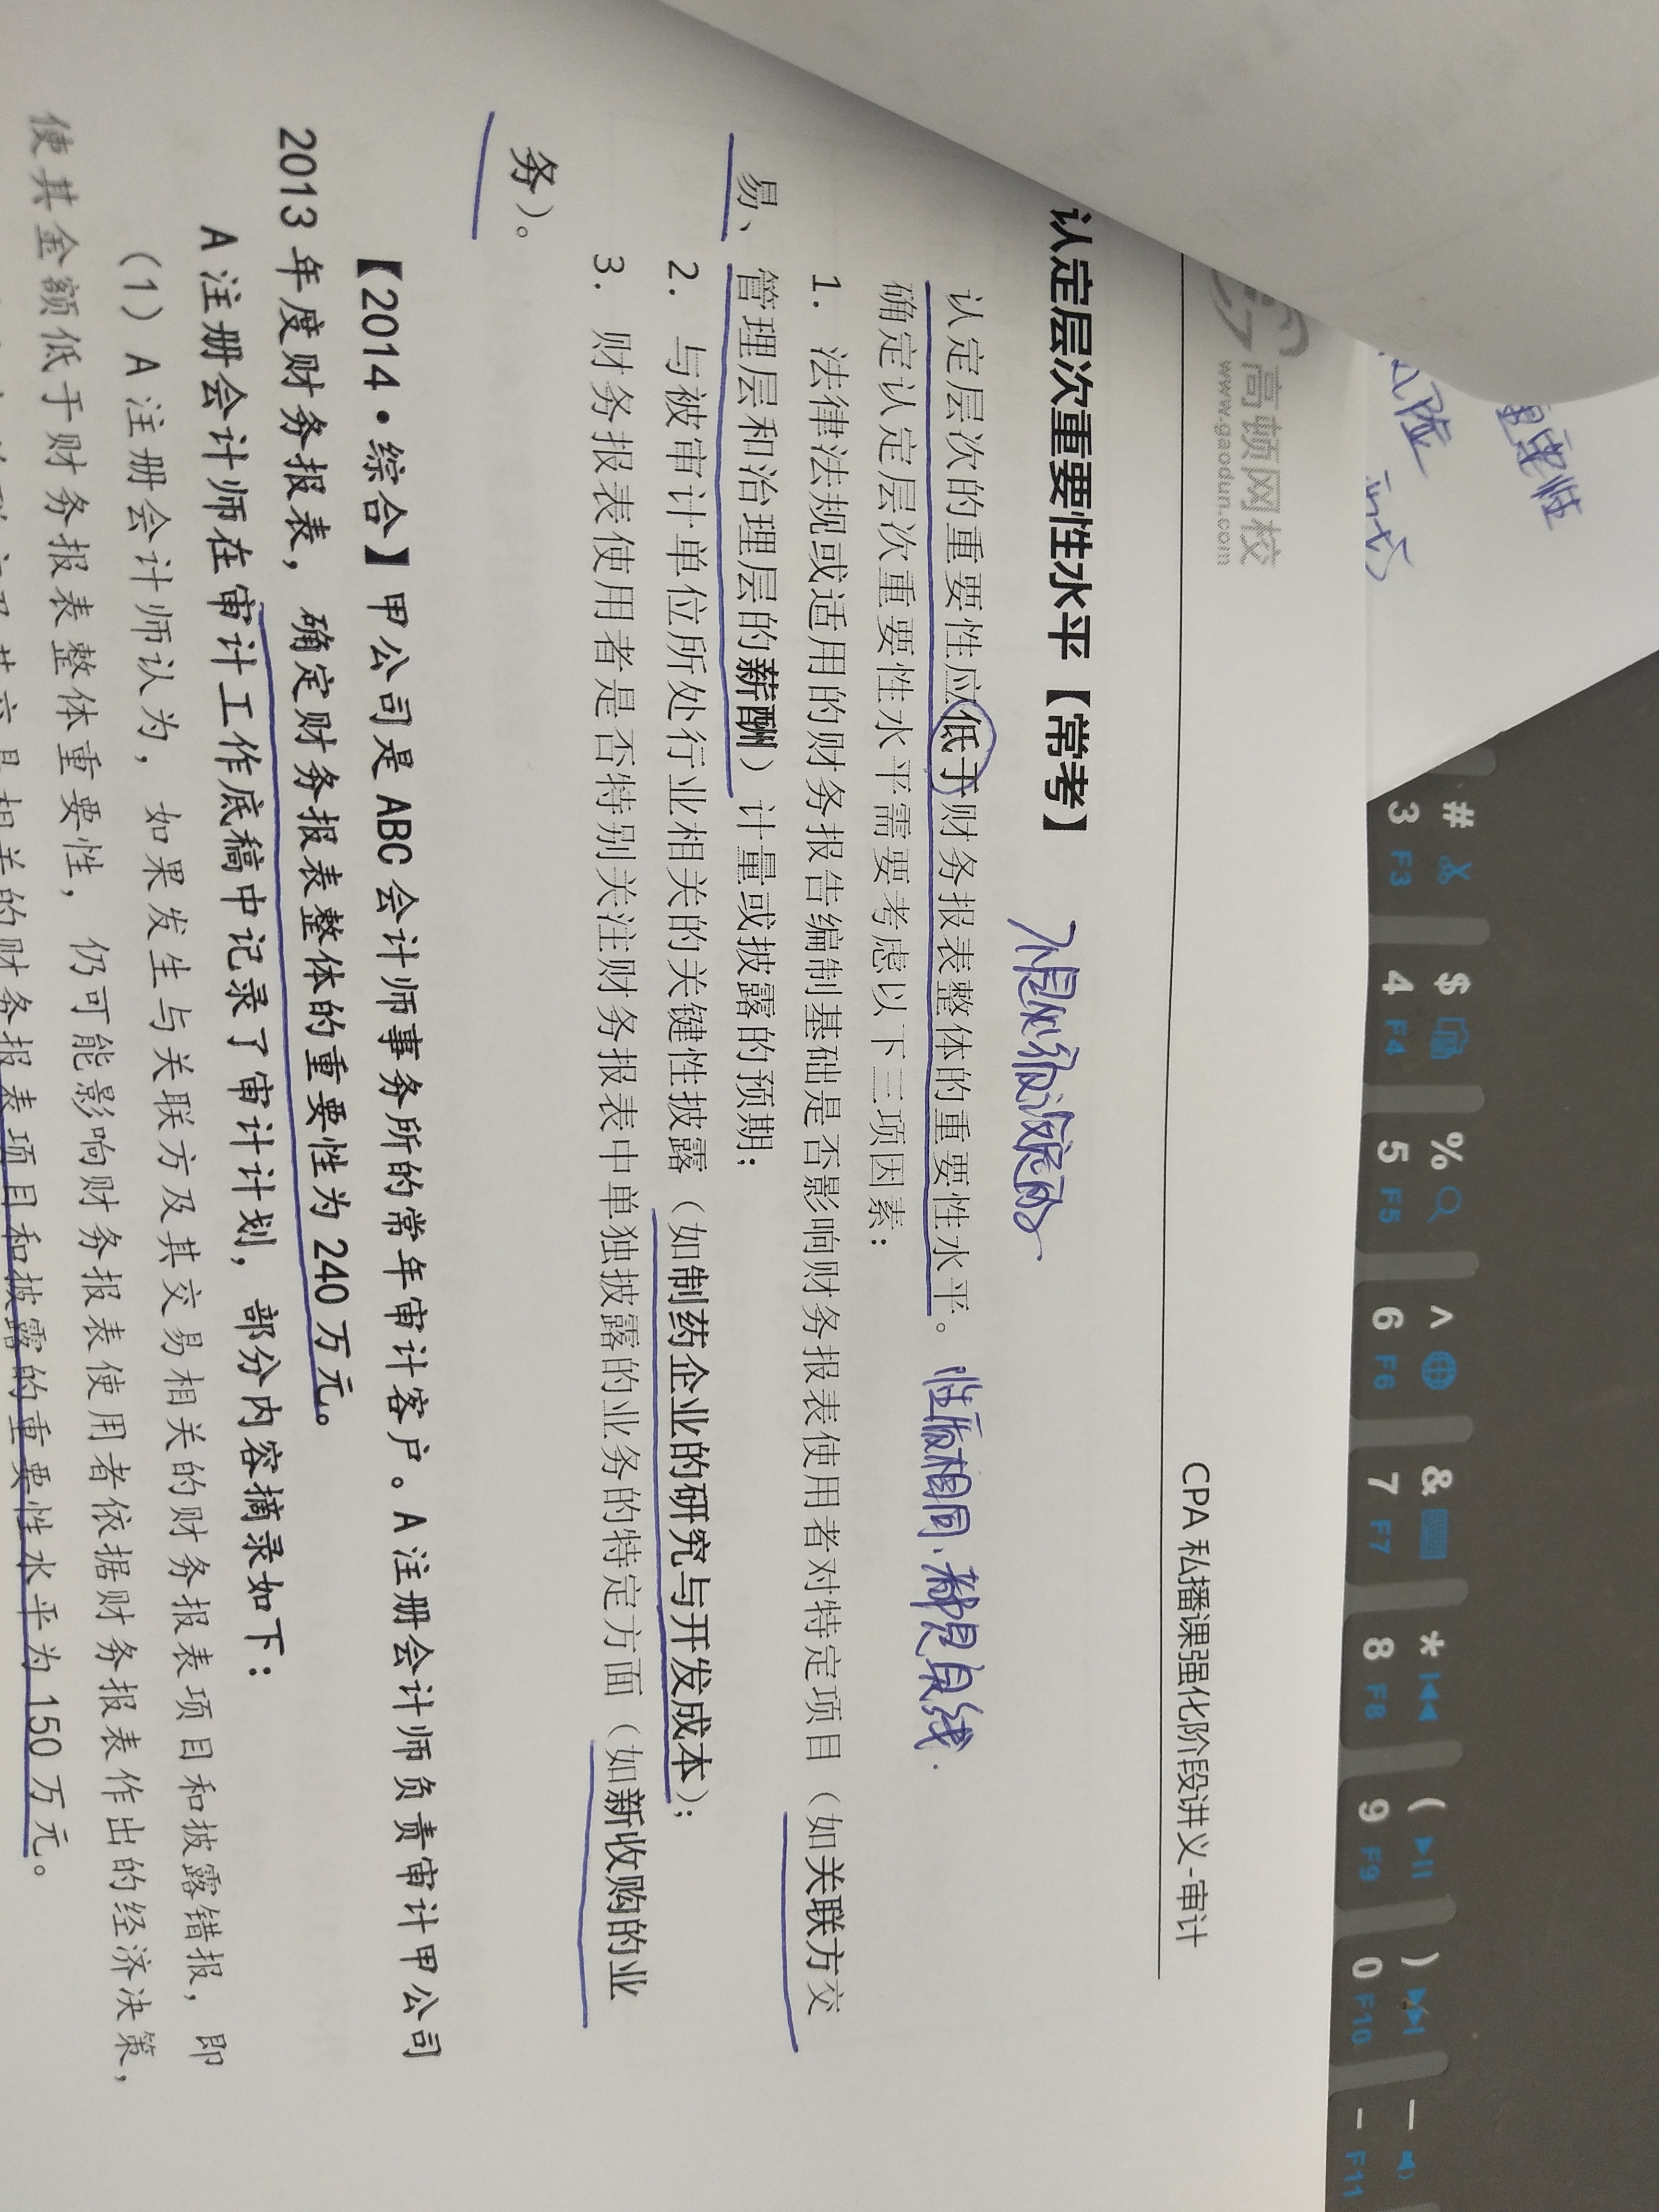 高顿网校
www.gaodun.com
CPA 私播课强化阶段讲义-审计
认定层次重要性水平【常考】
不是必须设定的
认定层次的重要性应低于财务报表整体的重要性水平。 性质相同,都是良线.
确定认定层次重要性水平需要考虑以下三项因素:
1. 法律法规或适用的财务报告编制基础是否影响财务报表使用者对特定项目(如关联方交
易、管理层和治理层的薪酬)计量或披露的预期;
2. 与被审计单位所处行业相关的关键性披露(如制药企业的研究与开发成本);
3. 财务报表使用者是否特别关注财务报表中单独披露的业务的特定方面(如新收购的业
务)。
【2014·综合】甲公司是 ABC 会计师事务所的常年审计客户。A 注册会计师负责审计甲公司
2013 年度财务报表,确定财务报表整体的重要性为 240 万元。
A 注册会计师在审计工作底稿中记录了审计计划,部分内容摘录如下:
(1)A 注册会计师认为,如果发生与关联方及其交易相关的财务报表项目和披露错报,即
使其金额低于财务报表整体重要性,仍可能影响财务报表使用者依据财务报表作出的经济决策,
相关的财务报表项目和披露的重要性水平为 150 万元。
重要性
风险
# $ % ^ & * ( ) —
3 4 5 6 7 8 9 0 –
F3 F4 F5 F6 F7 F8 F9 F10 F11